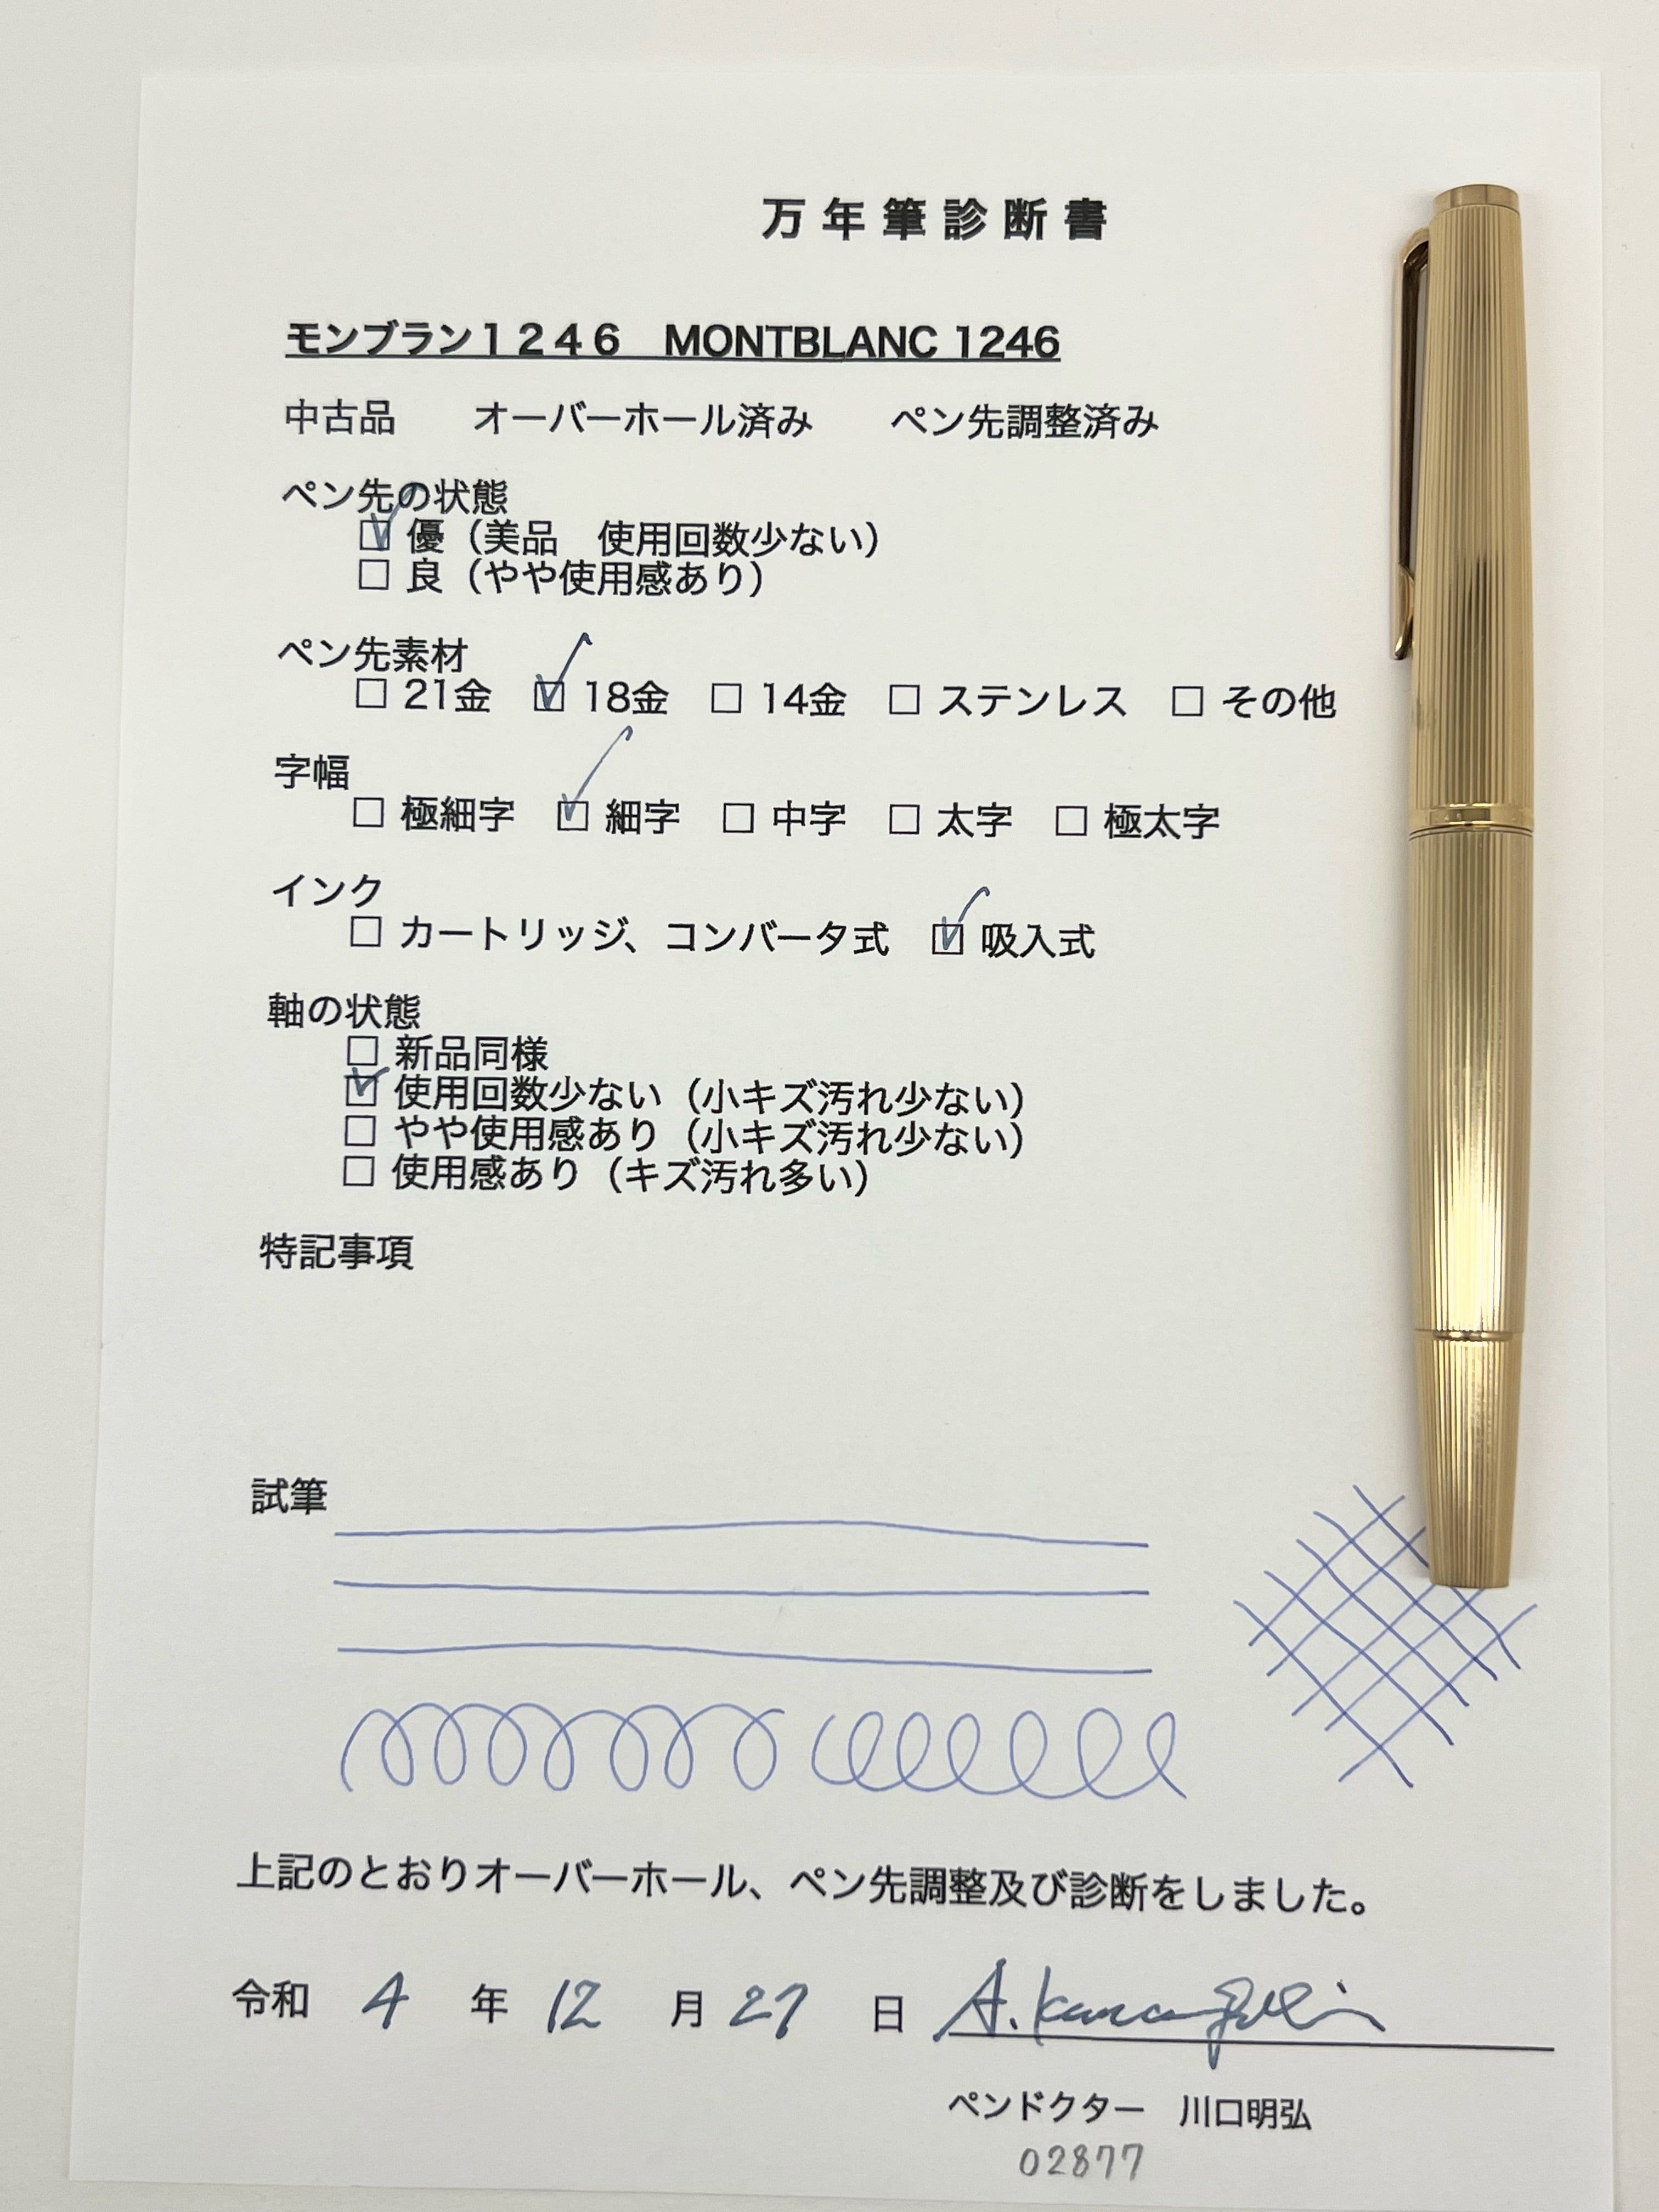 万年筆診断書
モンブラン１２４６　MONTBLANC 1246
中古品　　オーバーホール済み　　ペン先調整済み
ペン先の状態
☑ 優（美品　使用回数少ない）
☐ 良（やや使用感あり）
ペン先素材
☐ 21金　☑ 18金　☐ 14金　☐ ステンレス　☐ その他
字幅
☐ 極細字　☑ 細字　☐ 中字　☐ 太字　☐ 極太字
インク
☐ カートリッジ、コンバータ式　☑ 吸入式
軸の状態
☐ 新品同様
☑ 使用回数少ない（小キズ汚れ少ない）
☐ やや使用感あり（小キズ汚れ少ない）
☐ 使用感あり（キズ汚れ多い）
特記事項
試筆
上記のとおりオーバーホール、ペン先調整及び診断をしました。
令和 4 年 12 月 27 日 A. Kawaguchi
ペンドクター　川口明弘
02877